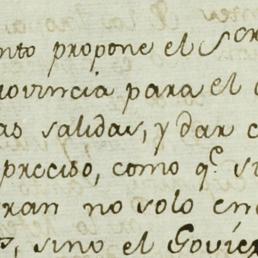 nto propone el S.or
rovincia para el
as salidas, y dar c
preciso, como q.e si
ran no solo en
, sino el Govie